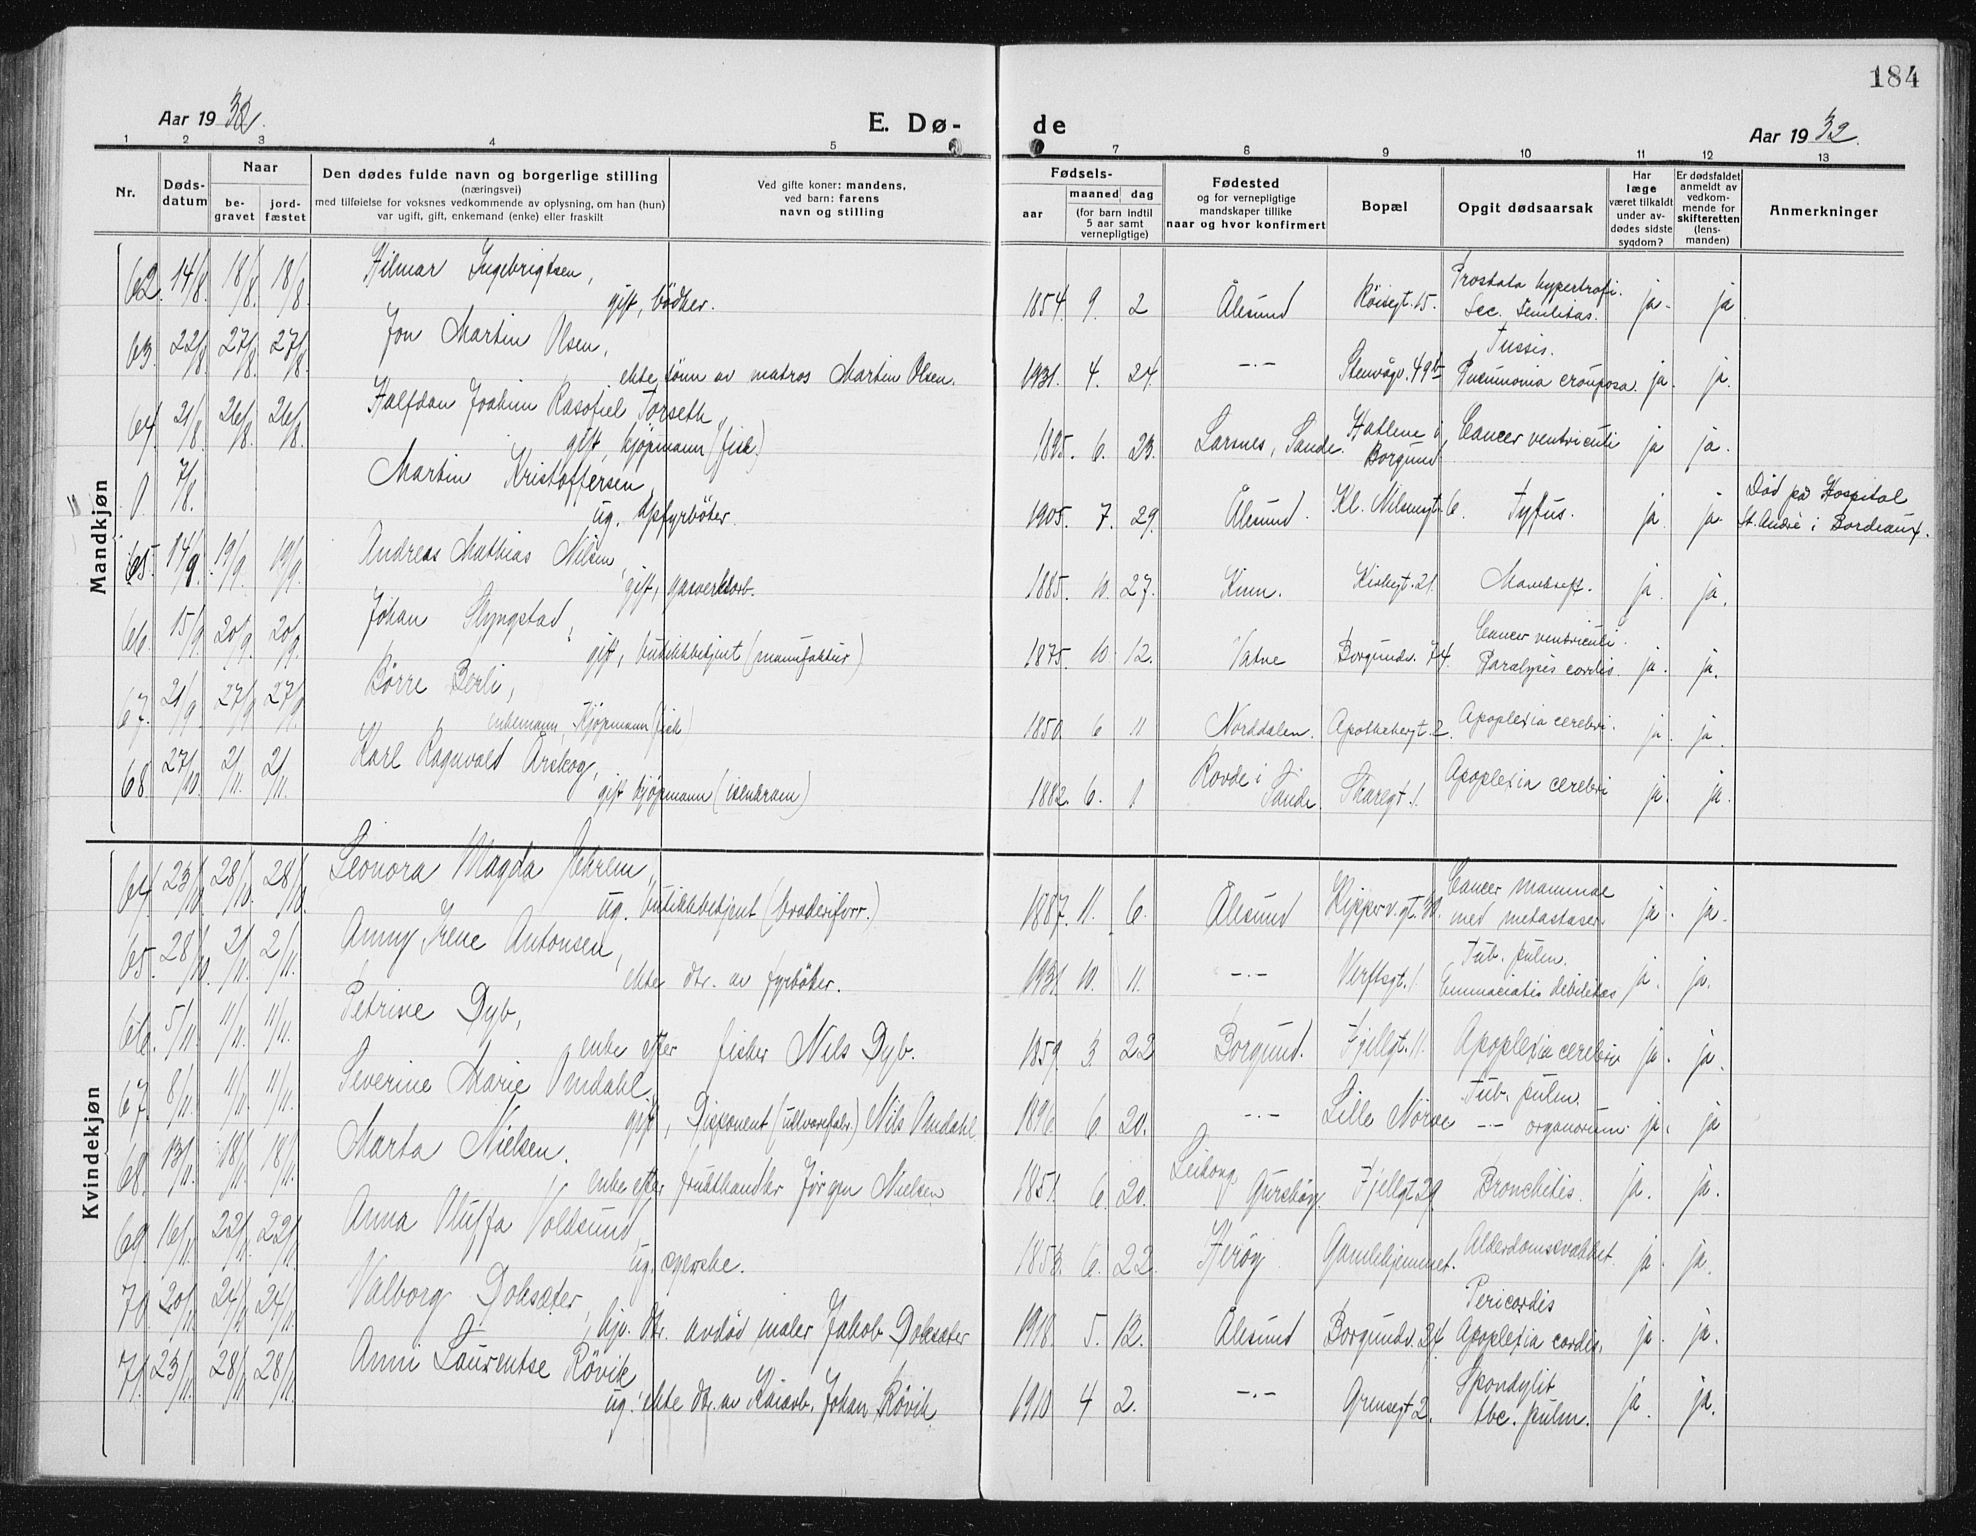 184
Aar 1932.
E. Dø-
de
Aar 1932.
1 2 3 4 5 7 8 9 10 11 12 13
Nr.
Døds-
datum
Naar
be-
gravet
jord-
fæstet
Den dødes fulde navn og borgerlige stilling
(næringsvei)
med tilføielse for voksnes vedkommende av oplysning, om han (hun)
var ugift, gift, enkemand (enke) eller fraskilt
Ved gifte koner: mandens,
ved barn: farens
navn og stilling
Fødsels-
aar
maaned dag
(for barn indtil
5 aar samt
vernepligtige)
Fødested
og for vernepligtige
mandskaper tillike
naar og hvor konfirmert
Bopæl
Opgit dødsaarsak
Har
læge
været tilkaldt
under av-
dødes sidste
sygdom?
Er dødsfaldet
anmeldt av
vedkom-
mende for
skifteretten
(lens-
manden)
Anmerkninger
Mandkjøn
62. 14/8. 18/8. 18/8. Hilmar Ingebrigtsen,
gift, bødker. 1854. 9. 2 Ålesund Röisegt. 15. Prostata hypertrofi.
Sec. Senilitas. ja. ja
63. 22/8. 27/8. 27/8. Jon Martin Olsen,
ekte sønn av matros Martin Olsen. 1931. 4. 24. -"- Stenvågv. 49b Tussis.
Pneumonia crouposa. ja. ja.
64. 21/8 26/8 26/8. Halfdan Joakim Rasofiel Torseth,
gift, kjøpmann (fisk.) 1895. 6. 23. Larsnes, Sande. Hatlene i
Borgund Cancer ventriculi ja ja.
0. 7/8. Martin Kristoffersen,
ug. Opfyrböter. 1905. 7. 29. Ålesund. Kl. Nilsengt. 6. Tyfus. ja. ja. Död på Hospital
St. André i Bordeaux.
65. 14/9. 19/9. 19/9. Andreas Mathias Nilsen,
gift, gasverksarb. 1885. 10. 27. Kinn. Kirkegt. 21. Mavekreft. ja. ja.
66. 15/9. 20/9 20/9. Johan Slyngstad,
gift, butikkbetjent (manufaktur) 1875. 10. 12. Vatne Borgundv. 74. Cancer ventriculi.
Paralysis cordis. ja. ja.
67. 21/9. 27/9 27/9. Børre Berli,
enkemann, Kjøpmann (fisk) 1850. 6 11 Norddalen. Apothekergt. 2. Apoplexia cerebri. ja. ja.
68. 27/10. 2/11. 2/11. Karl Ragnvald Årskog,
gift kjøpmann (isenkram) 1882. 6. 1 Rovde i
Sande. Skaregt. 1. Apoplexia cerebri ja. ja.
Kvindekjøn
64. 23/10 28/10. 28/10. Leonora Magda
ug. butikkbetjent (broderiforr.) 1887. 11. 6. Ålesund Kipperv.gt. Cancer mammae
med metastaser. ja. ja.
65. 28/10. 2/11. 2/11. Anny Irene Antonsen,
ekte dtr. av fyrböter. 1931. 10. 11. -"- Verftsgt. 1. Tub. pulm.
Emmaciatis debilitas ja. ja.
66. 5/11. 11/11. 11/11. Petrine Dyb,
enke efter fisker Nils Dyb. 1859. 3. 22 Borgund. Fjellgt. 11. Apoplexia cerebri ja. ja
67. 8/11. 11/11. 11/11. Severine Marie Omdahl,
gift, Disponent (ullvarefabr.) Nils Omdahl 1896. 6. 20. -"- Lille Nörve Tub. pulm.
-"- organorum. ja. ja
68. 13/11. 18/11. 18/11. Marta Nielsen.
enke efter frukthandler Jørgen Nielsen 1851. 6. 20. Leikong
Gurskøy. Fjellgt. 29. Bronchitis. ja. ja.
69. 16/11 22/11. 22/11. Anna Oluffa Voldsund,
ug. syerske. 1853. 6. 22. Herøy Gamlehjemmet. Alderdomssvakhet. ja. ja.
70. 20/11 24/11 24/11. Valborg Doksæter,
hjv. dtr. avdöd maler Jakob Doksæter 1918. 5. 12. Ålesund Borgundv. 24. Pericordis
Apoplexia cordis. ja. ja.
71. 23/11. 28/11 28/11. Anni Laurentse Rövik
ug. ekte dtr. av Kaiarb. Johan Rövik. 1910 4 2. -"- Grensegt 2. Spondylit
tbc. pulm. ja. ja.